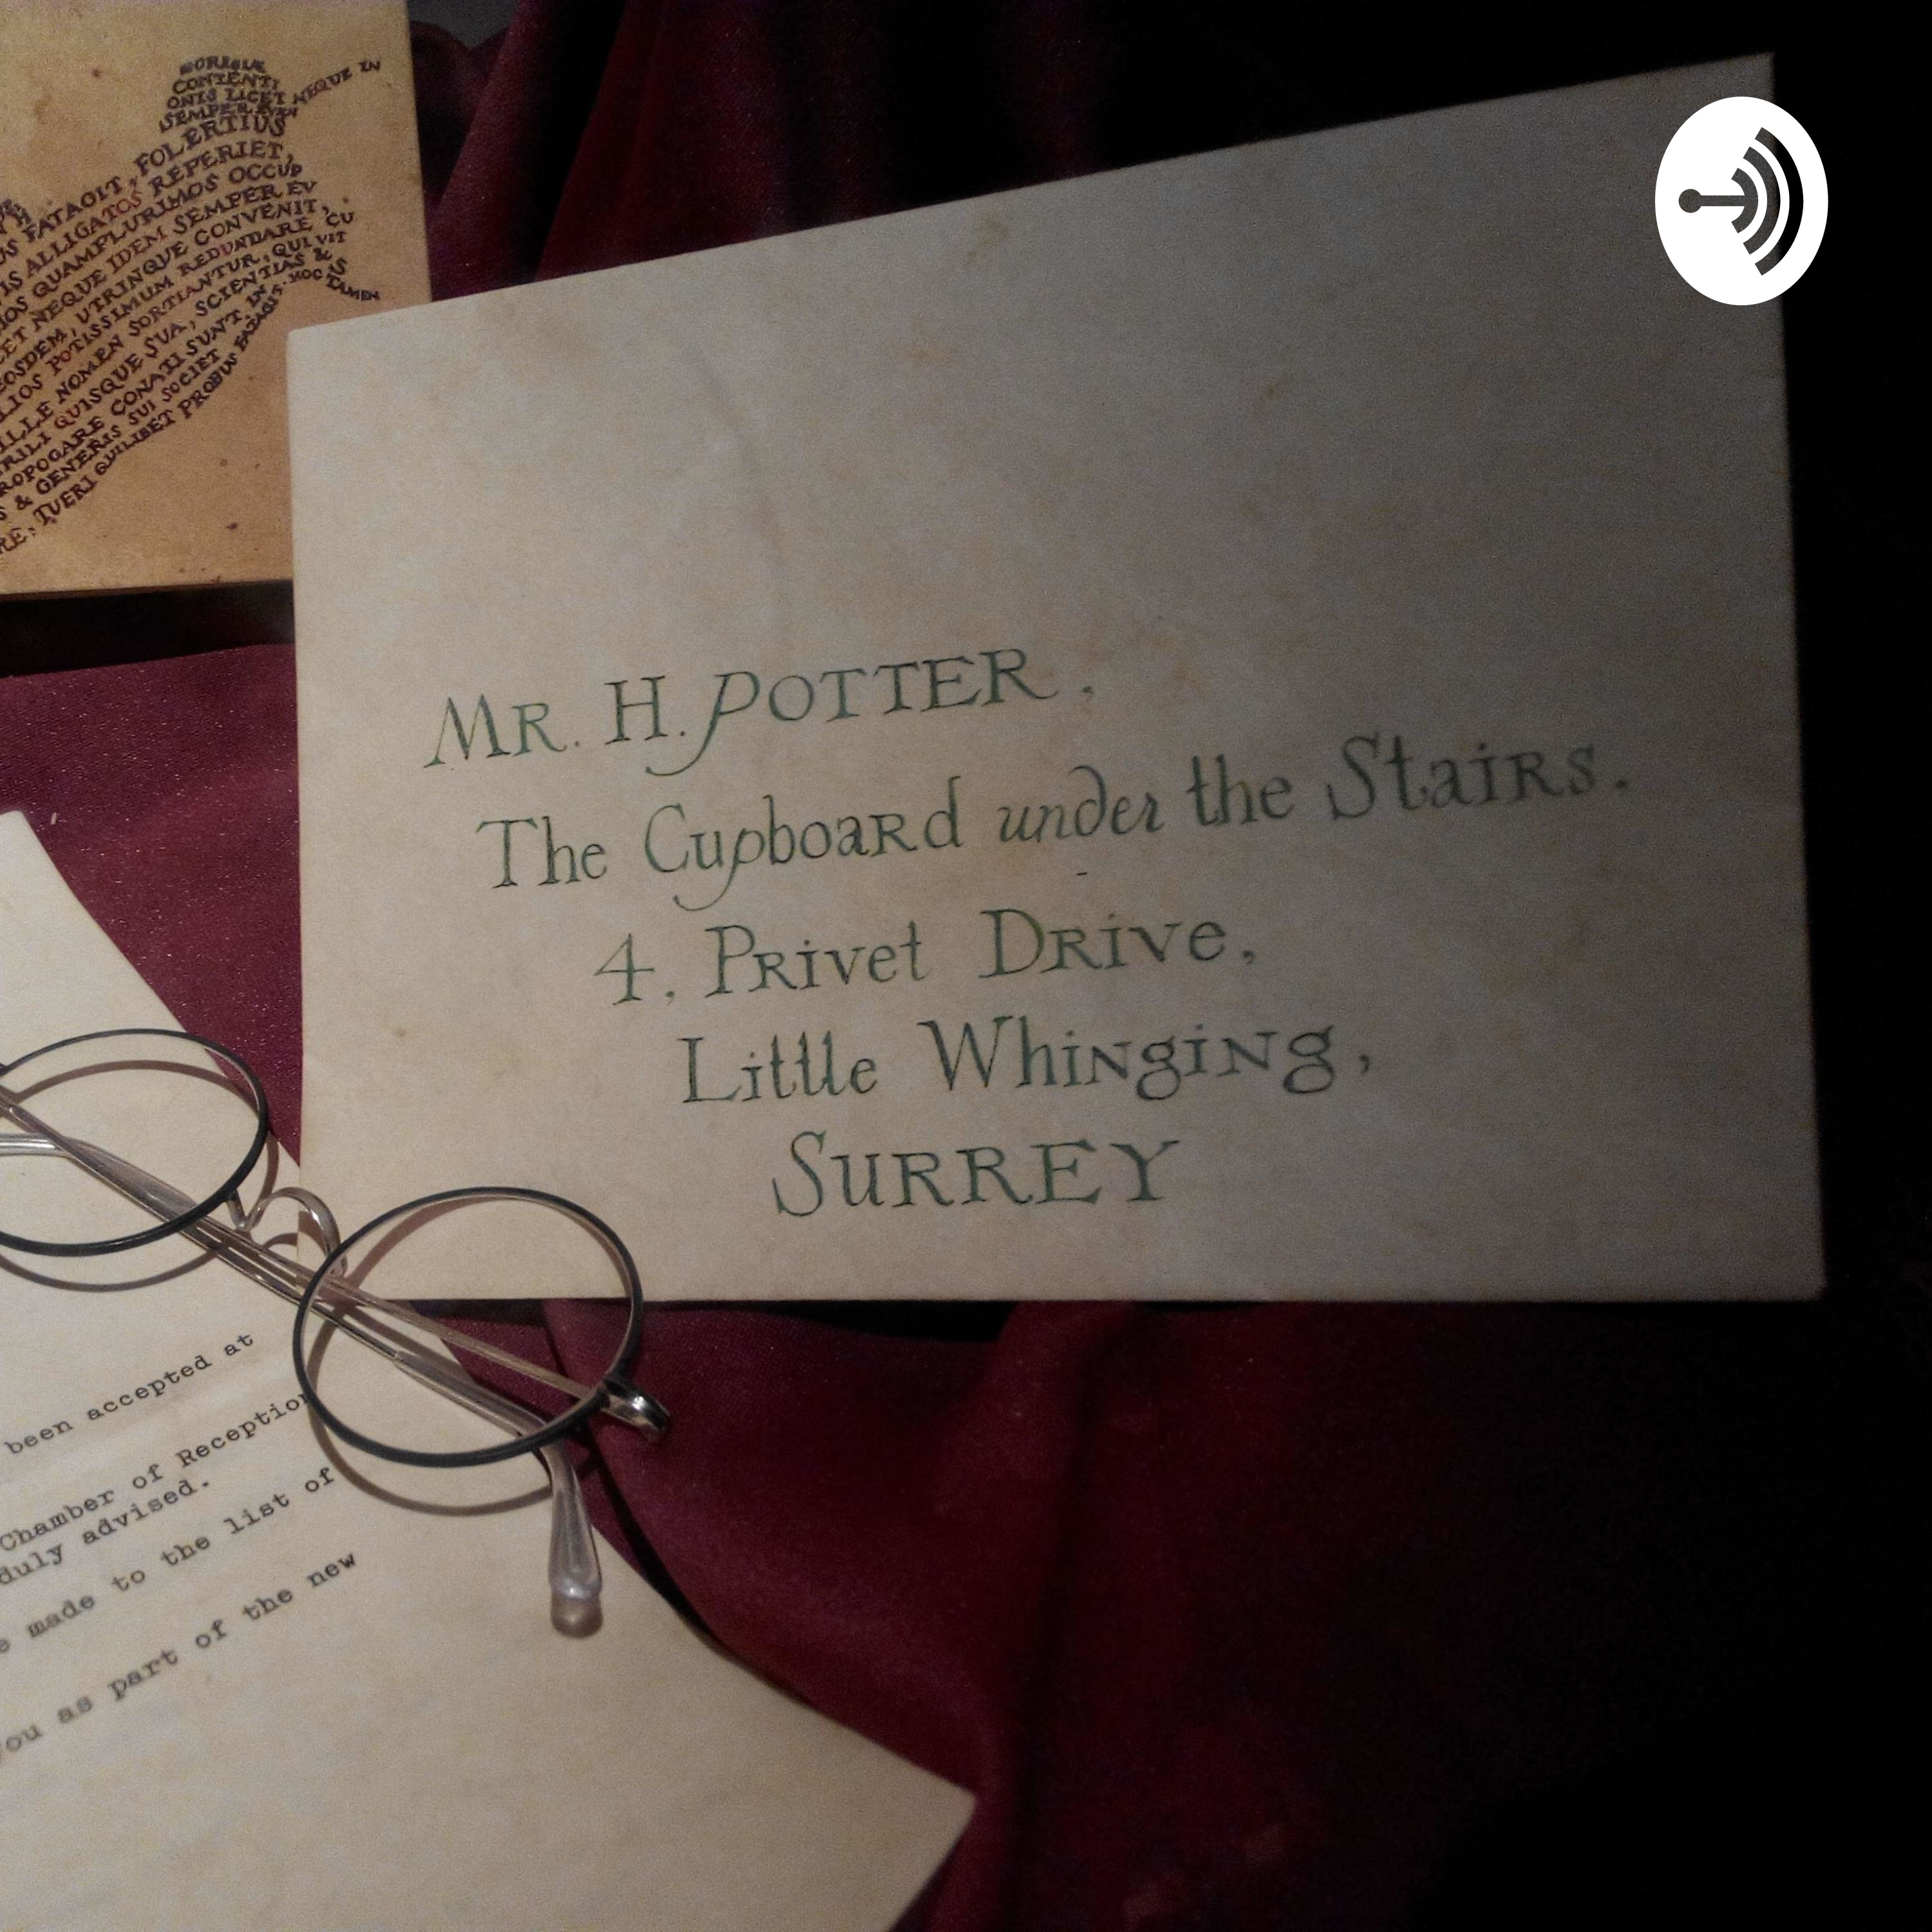 CONTENTI
ONIS LICET NEQUE IN
FOLERTIUS
FATAOIT, REPERIET,
IS ALLIGATOS
QUAMPLURIMOS OCCUP
ET NEQUE IDEM SEMPER EV
EOSDEM, UTRINQUE CONVENIT,
LIOS POTISSIMUM REDUNDARE CU
ILLE NOMEN SORTIANTUR, QUI VIT
RILI QUISQUE SUA, SCIENTIAS &
ROPOGARE CONATI SUNT, IN HOC
S & GENERIS SUI SOCIET TAMEN
RE, TUERI QUILIBET PROBUS
MR. H. POTTER,
The Cupboard under the Stairs.
4, Privet Drive,
Little Whinging,
SURREY
been accepted at
Chamber of Reception
duly advised.
made to the list of
you as part of the new